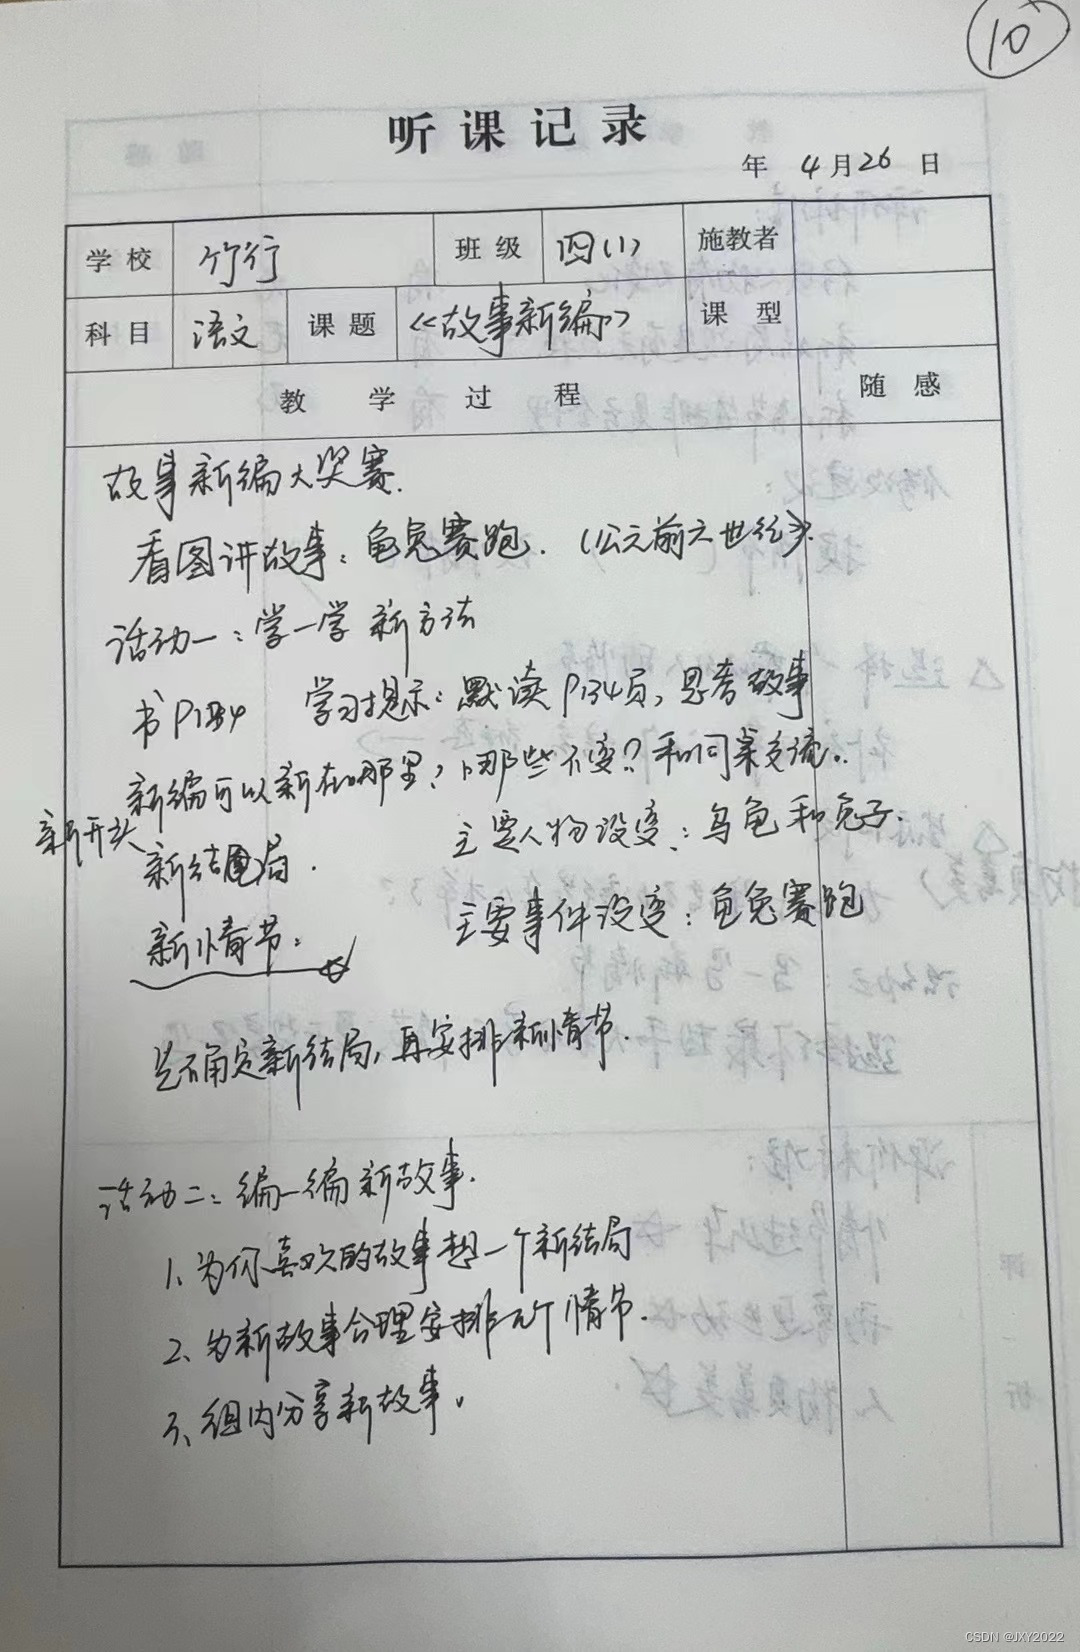 10
听课记录
年 4月26日
学校 竹行 班级 四(1) 施教者
科目 语文 课题 《故事新编》 课型
教学过程 随感
故事新编大奖赛.
看图讲故事：龟兔赛跑. (公元前六世纪).
活动一：学一学新方法
书P134 学习提示：默读P134页，思考故事
新编可以新在哪里？哪些不变？和同桌交流.
新开头
主要人物没变：乌龟和兔子.
新结局.
主要事件没变：龟兔赛跑
新情节：
先确定新结局，再安排新情节.
活动二：编一编新故事.
1、为你喜欢的故事想一个新结局
2、为新故事合理安排几个情节.
3、组内分享新故事。
CSDN @JXY2022